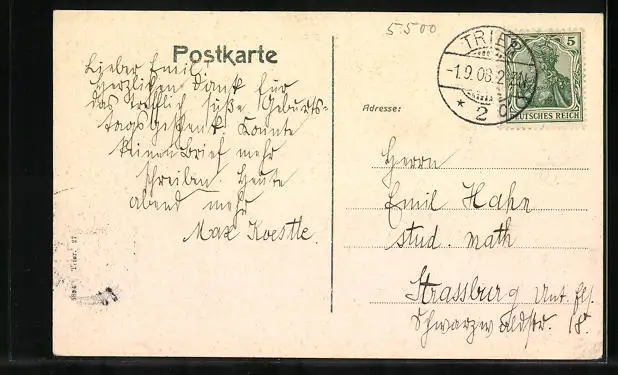 5500
Postkarte
TRIER
-1.9.06.2
* 2
5
DEUTSCHES REICH
Lieber Emil!
Herzlichen Dank für
das trefflich süße Geburts-
tagsgeschenk. Konnte
keinen Brief mehr
schreiben. Heute
abend mehr
Max Koestle.
Adresse:
Herrn
Emil Hahn
stud. math
Strassburg Unt. Els.
Schwarzwaldstr. 18.
Trier. 27